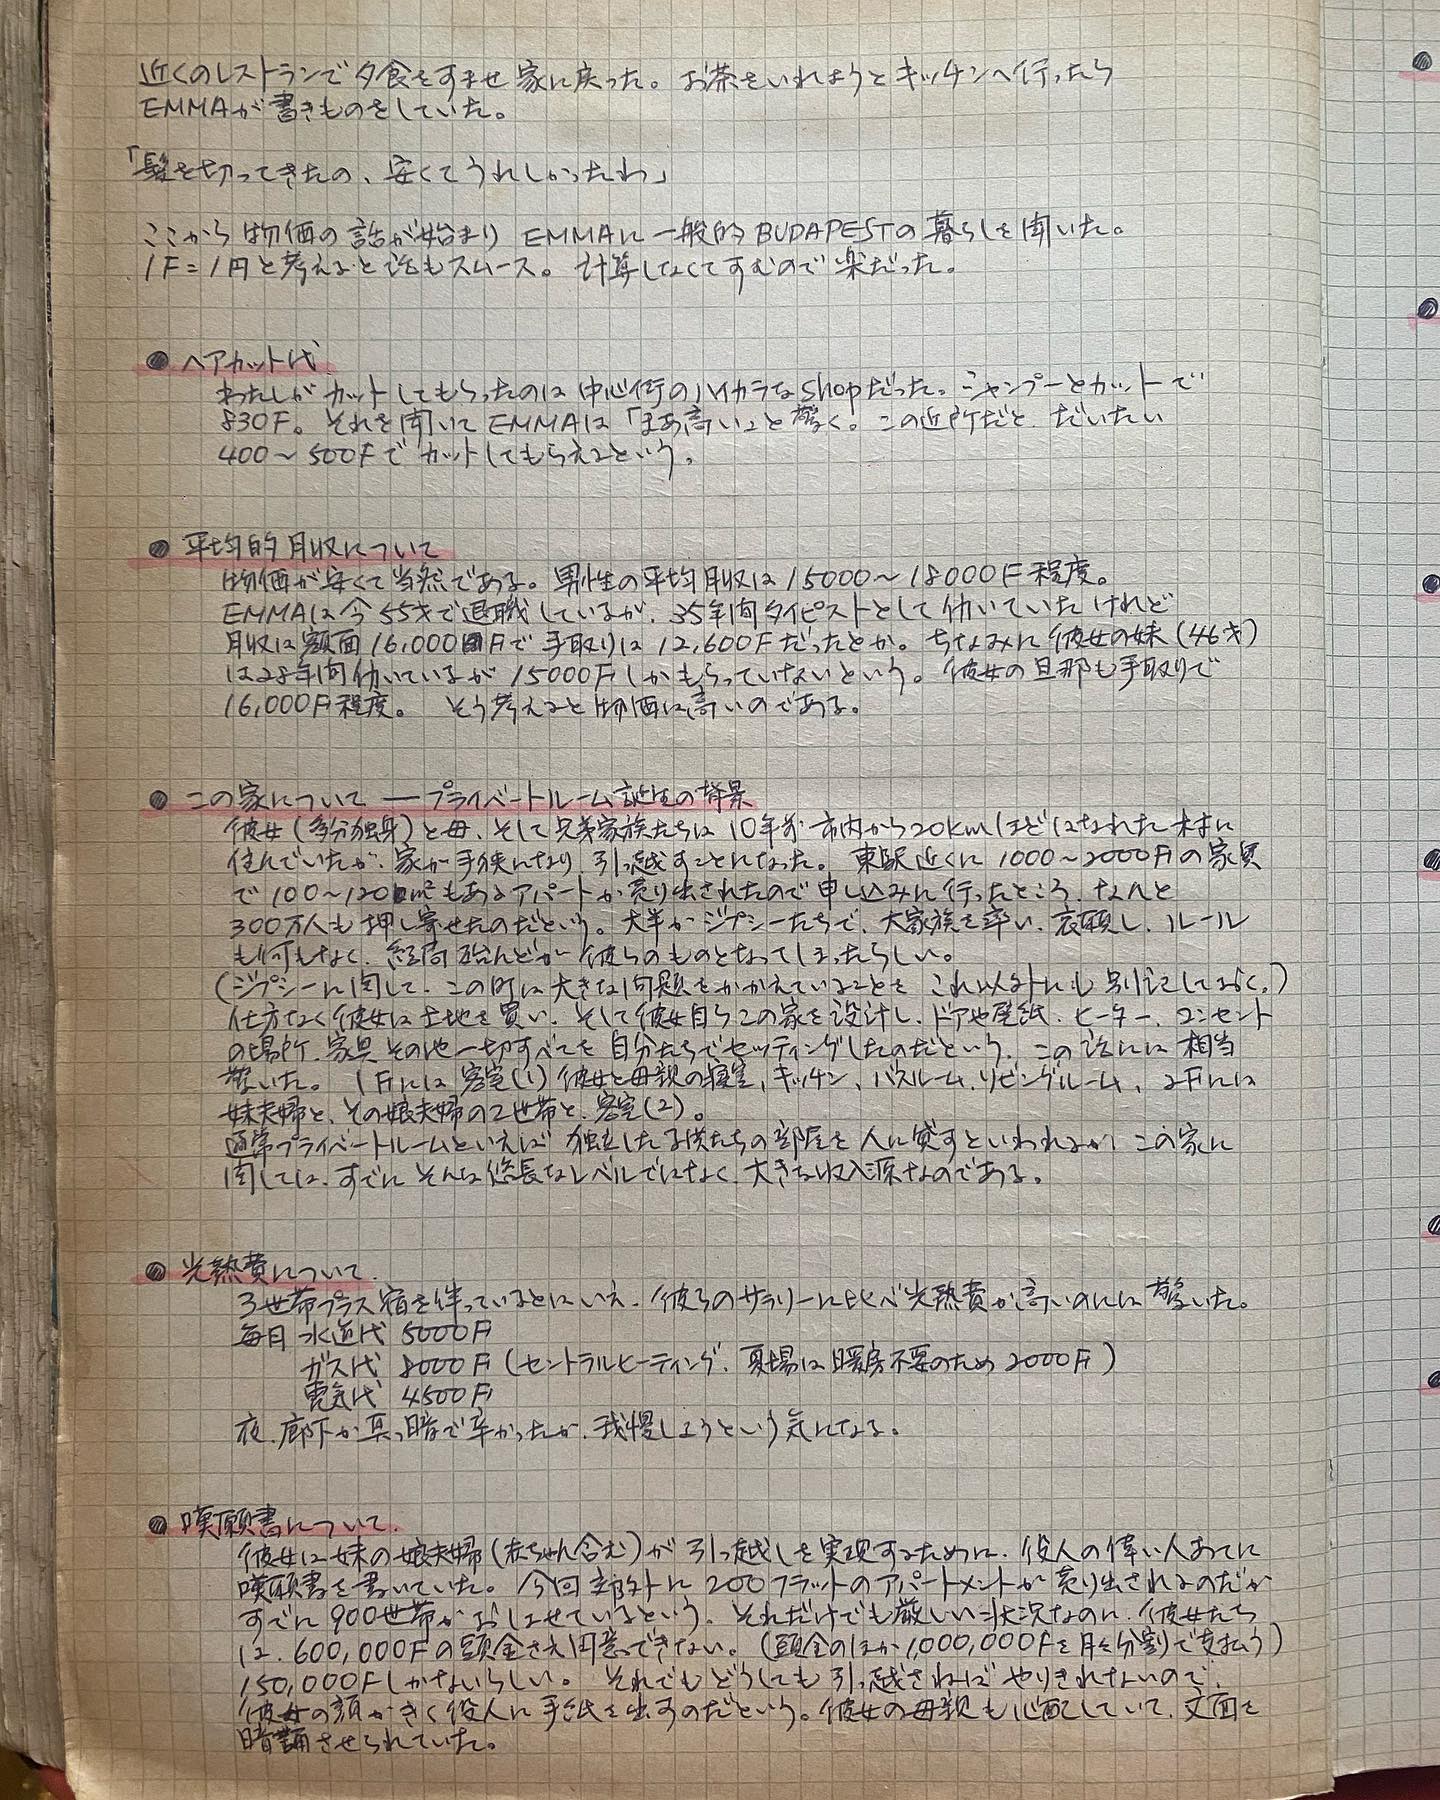 近くのレストランで夕食をすませ家に戻った。お茶をいれようとキッチンへ行ったら
EMMAが書きものをしていた。
「髪を切ってきたの、安くてうれしかったわ」
ここから物価の話が始まり EMMAに一般的BUDAPESTの暮らしを聞いた。
1F=1円と考えると話もスムース。計算しなくてすむので楽だった。
● ヘアカット代
わたしがカットしてもらったのは中心街のハイカラなshopだった。シャンプーとカットで
830F。それを聞いてEMMAは「まあ高い」と驚く。この近所だと、だいたい
400〜500Fでカットしてもらえるという。
● 平均的月収について
物価が安くて当然である。男性の平均月収は15000〜18000F程度。
EMMAは今55才で退職しているが、35年間タイピストとして働いていたけれど
月収は額面16,000Fで手取りは12,600Fだったとか。ちなみに彼女の妹(46才)
は28年間働いているが15000Fしかもらっていないという。彼女の旦那も手取りで
16,000F程度。そう考えると物価は高いのである。
● この家について ── プライベートルーム誕生の背景
彼女(多分独身)と母、そして兄弟家族たちは10年前市内から20kmほどはなれた村に
住んでいたが、家が手狭になり、引っ越すことになった。東駅近くに1000〜2000Fの家賃
で100〜120m²もあるアパートが売り出されたので申し込みに行ったところ、なんと
300万人も押し寄せたのだという。大半がジプシーたちで、大家族を率い、哀願し、ルール
も何もなく、結局殆んどが彼らのものとなってしまったらしい。
(ジプシーに関して、この町は大きな問題をかかえていることを これ以外にも別記しておく。)
仕方なく彼女は土地を買い、そして彼女自らこの家を設計し、ドアや壁紙、ヒーター、コンセント
の場所、家具その他一切すべてを自分たちでセッティングしたのだという。この話には相当
驚いた。1Fには客室(1)彼女と母親の寝室、キッチン、バスルーム、リビングルーム、2Fには
妹夫婦と、その娘夫婦の2世帯と、客室(2)。
通常プライベートルームといえば 独立した子供たちの部屋を人に貸すといわれるが、この家に
関しては、すでにそんな悠長なレベルではなく、大きな収入源なのである。
● 光熱費について
3世帯プラス宿を伴っているとはいえ、彼らのサラリーに比べ光熱費が高いのには驚いた。
毎日 水道代 5000F
ガス代 8000F(セントラルヒーティング、夏場は暖房不要のため2000F)
電気代 4500F
夜、廊下が真っ暗で辛かったが、我慢しようという気になる。
● 嘆願書について
彼女は妹の娘夫婦(赤ちゃん含む)が引っ越しを実現するために、役人の偉い人あてに
嘆願書を書いていた。今回郊外に200フラットのアパートメントが売り出されるのだが
すでに900世帯がおしよせているという。それだけでも厳しい状況なのに、彼女たち
は、600,000Fの頭金さえ用意できない。(頭金のほか1,000,000Fを月々分割で支払う)
150,000Fしかないらしい。それでもどうしても引っ越さねばやりきれないので、
彼女の顔がきく役人に手紙を出すのだという。彼女の母親も心配していて、文面を
暗誦させられていた。